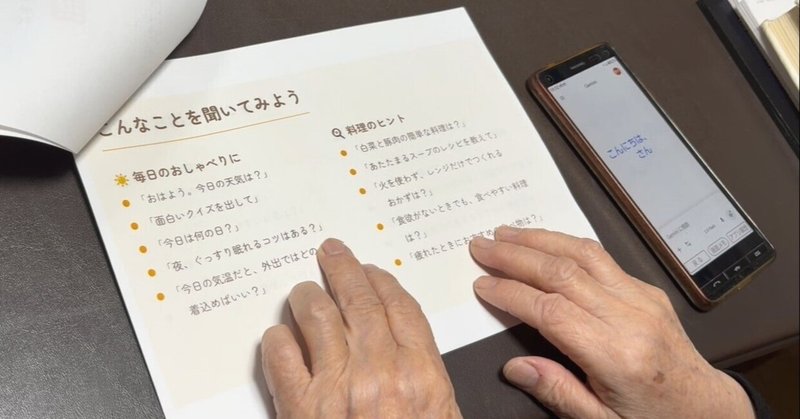 こんなことを聞いてみよう
毎日のおしゃべりに
「おはよう。今日の天気は？」
「面白いクイズを出して」
「今日は何の日？」
「夜、ぐっすり眠れるコツはある？」
「今日の気温だと、外出ではどの
着込めばいい？」
料理のヒント
「白菜と豚肉の簡単な料理は？」
「あたたまるスープのレシピを教えて」
「火を使わず、レンジだけでつくれる
おかずは？」
「食欲がないときでも、食べやすい料理
は？」
「疲れたときにおすすめ
物は？」
Gemini
こんにちは、
さん
戻る